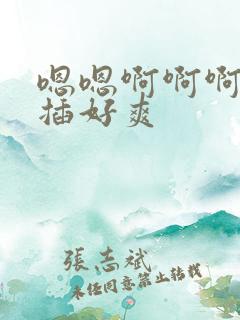 嗯嗯啊啊啊
插好爽
張志斌
未经同意禁止转载